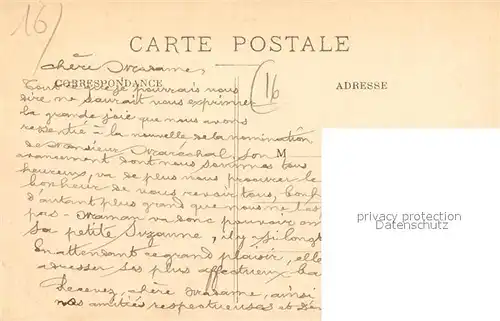 16
CARTE POSTALE
Chère Madame,
CORRESPONDANCE
16
ADRESSE
Tout ce que je pourrais nous
dire ne saurait vous exprimer
la grande joie que nous avons
ressentie à la nouvelle de la nomination
de Monsieur Maréchal. Son
M
avancement dont nous sommes tous
heureux, va de plus nous procurer le
bonheur de vous revoir tous,
d'autant plus grand que nous ne
pas - Maman va donc pouvoir
Sa petite Suzanne, il y a si longt
En attendant ce grand plaisir, elle
adresser ses plus affectueux
Recevez, chère Madame, ainsi
nos amitiés respectueuses et
privacy protection
oldthing.de